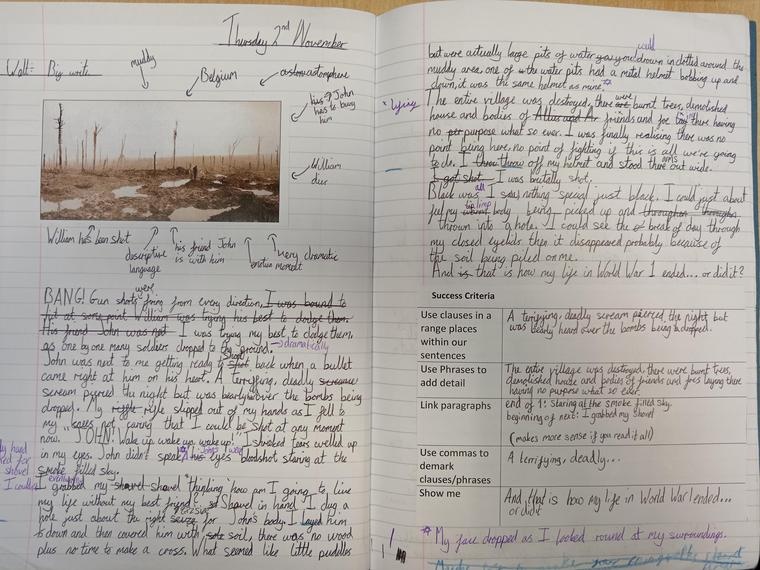 Thursday 2nd November
Wall: Big write
muddy
Belgium
astmostphere
his John
has to bury
him
William
dies
William has ben shot
discriptive
language
his friend John
is with him
emotion moment
very dramatic
BANG! Gun shots were firing from every direction, I was bound to
hit at some point William was trying his best to dodge them.
His friend John was not I was trying my best, to dodge them,
as one by one many soldiers dropped to the ground. dramatically
John was next to me getting ready to shoot back when a bullet
came right at him on his heart. A terrifying, deadly scream
scream pierced the night but was bearly over the bombs being
dropped. My rifle slipped out of my hands as I fell to
my knees not caring that I could be shot at any moment
now. "JOHN! Wake up wake up, wake up!" I shouted tears welled up
in my eyes. John didn't speak his eyes bloodshot staring at the
smoke filled sky.
I grabbed my shovel thinking how am I going to live
my life without my best friend? Shovel in hand I dug a
hole just about the right size for John's body. I layed him
down and then covered him with soil, there was no wood
plus no time to make a cross. What seemed like little puddles
but were actually large pits of water you could drown in dotted around the
muddy area, one of the water pits had a metal helmet bobbing up and
down, it was the same helmet as mine.
The entire village was destroyed, there were burnt trees, demolished
house and bodies of friends and foe lying there having
no purpose what so ever. I was finally realising there was no
point being here, no point of fighting if this is all we're going
to do. I threw off my helmet and stood there arms out wide.
I got shot I was brutally shot.
Black was all I saw nothing special just black. I could just about
feel my limp body being picked up and
thrown into a hole. I could see the break of day through
my closed eyelids then it disappeared probably because of
the soil being piled on me.
And that is how my life in World War I ended... or did it?
Success Criteria
Use clauses in a
range places
within our
sentences
A terrifying, deadly scream pierced the night, but
was bearly heard over the bombs being dropped.
Use Phrases to
add detail
The entire village was destroyed, there were burnt trees,
demolished house and bodies of friends and foes laying there
having no purpose what so ever.
Link paragraphs
end of 1: Staring at the smoke filled sky.
beginning of next: I grabbed my shovel
(makes more sense if you read it all)
Use commas to
demark
clauses/phrases
A terrifying, deadly...
Show me
And that is how my life in World War I ended...
or did it
* My face dropped as I looked round at my surroundings.